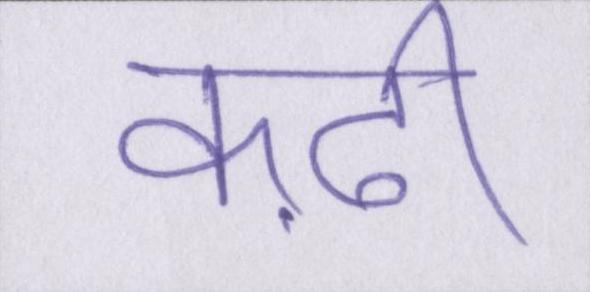 कढ़ी